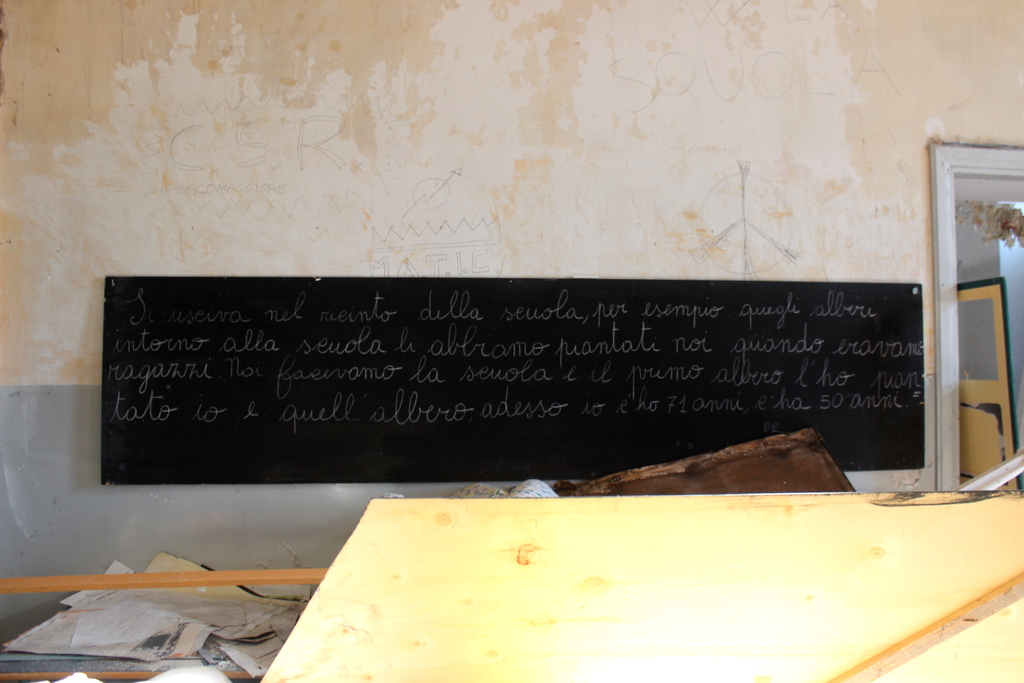 W LA
SQUOLA
CSR
BALCOMAGGIORE
MATIC
Si usciva nel recinto della scuola, per esempio quegli alberi
intorno alla scuola li abbiamo piantati noi quando eravamo
ragazzi. Noi facevamo la scuola e il primo albero l'ho pian-
tato io e quell'albero, adesso io c'ho 71 anni, c'ha 50 anni."